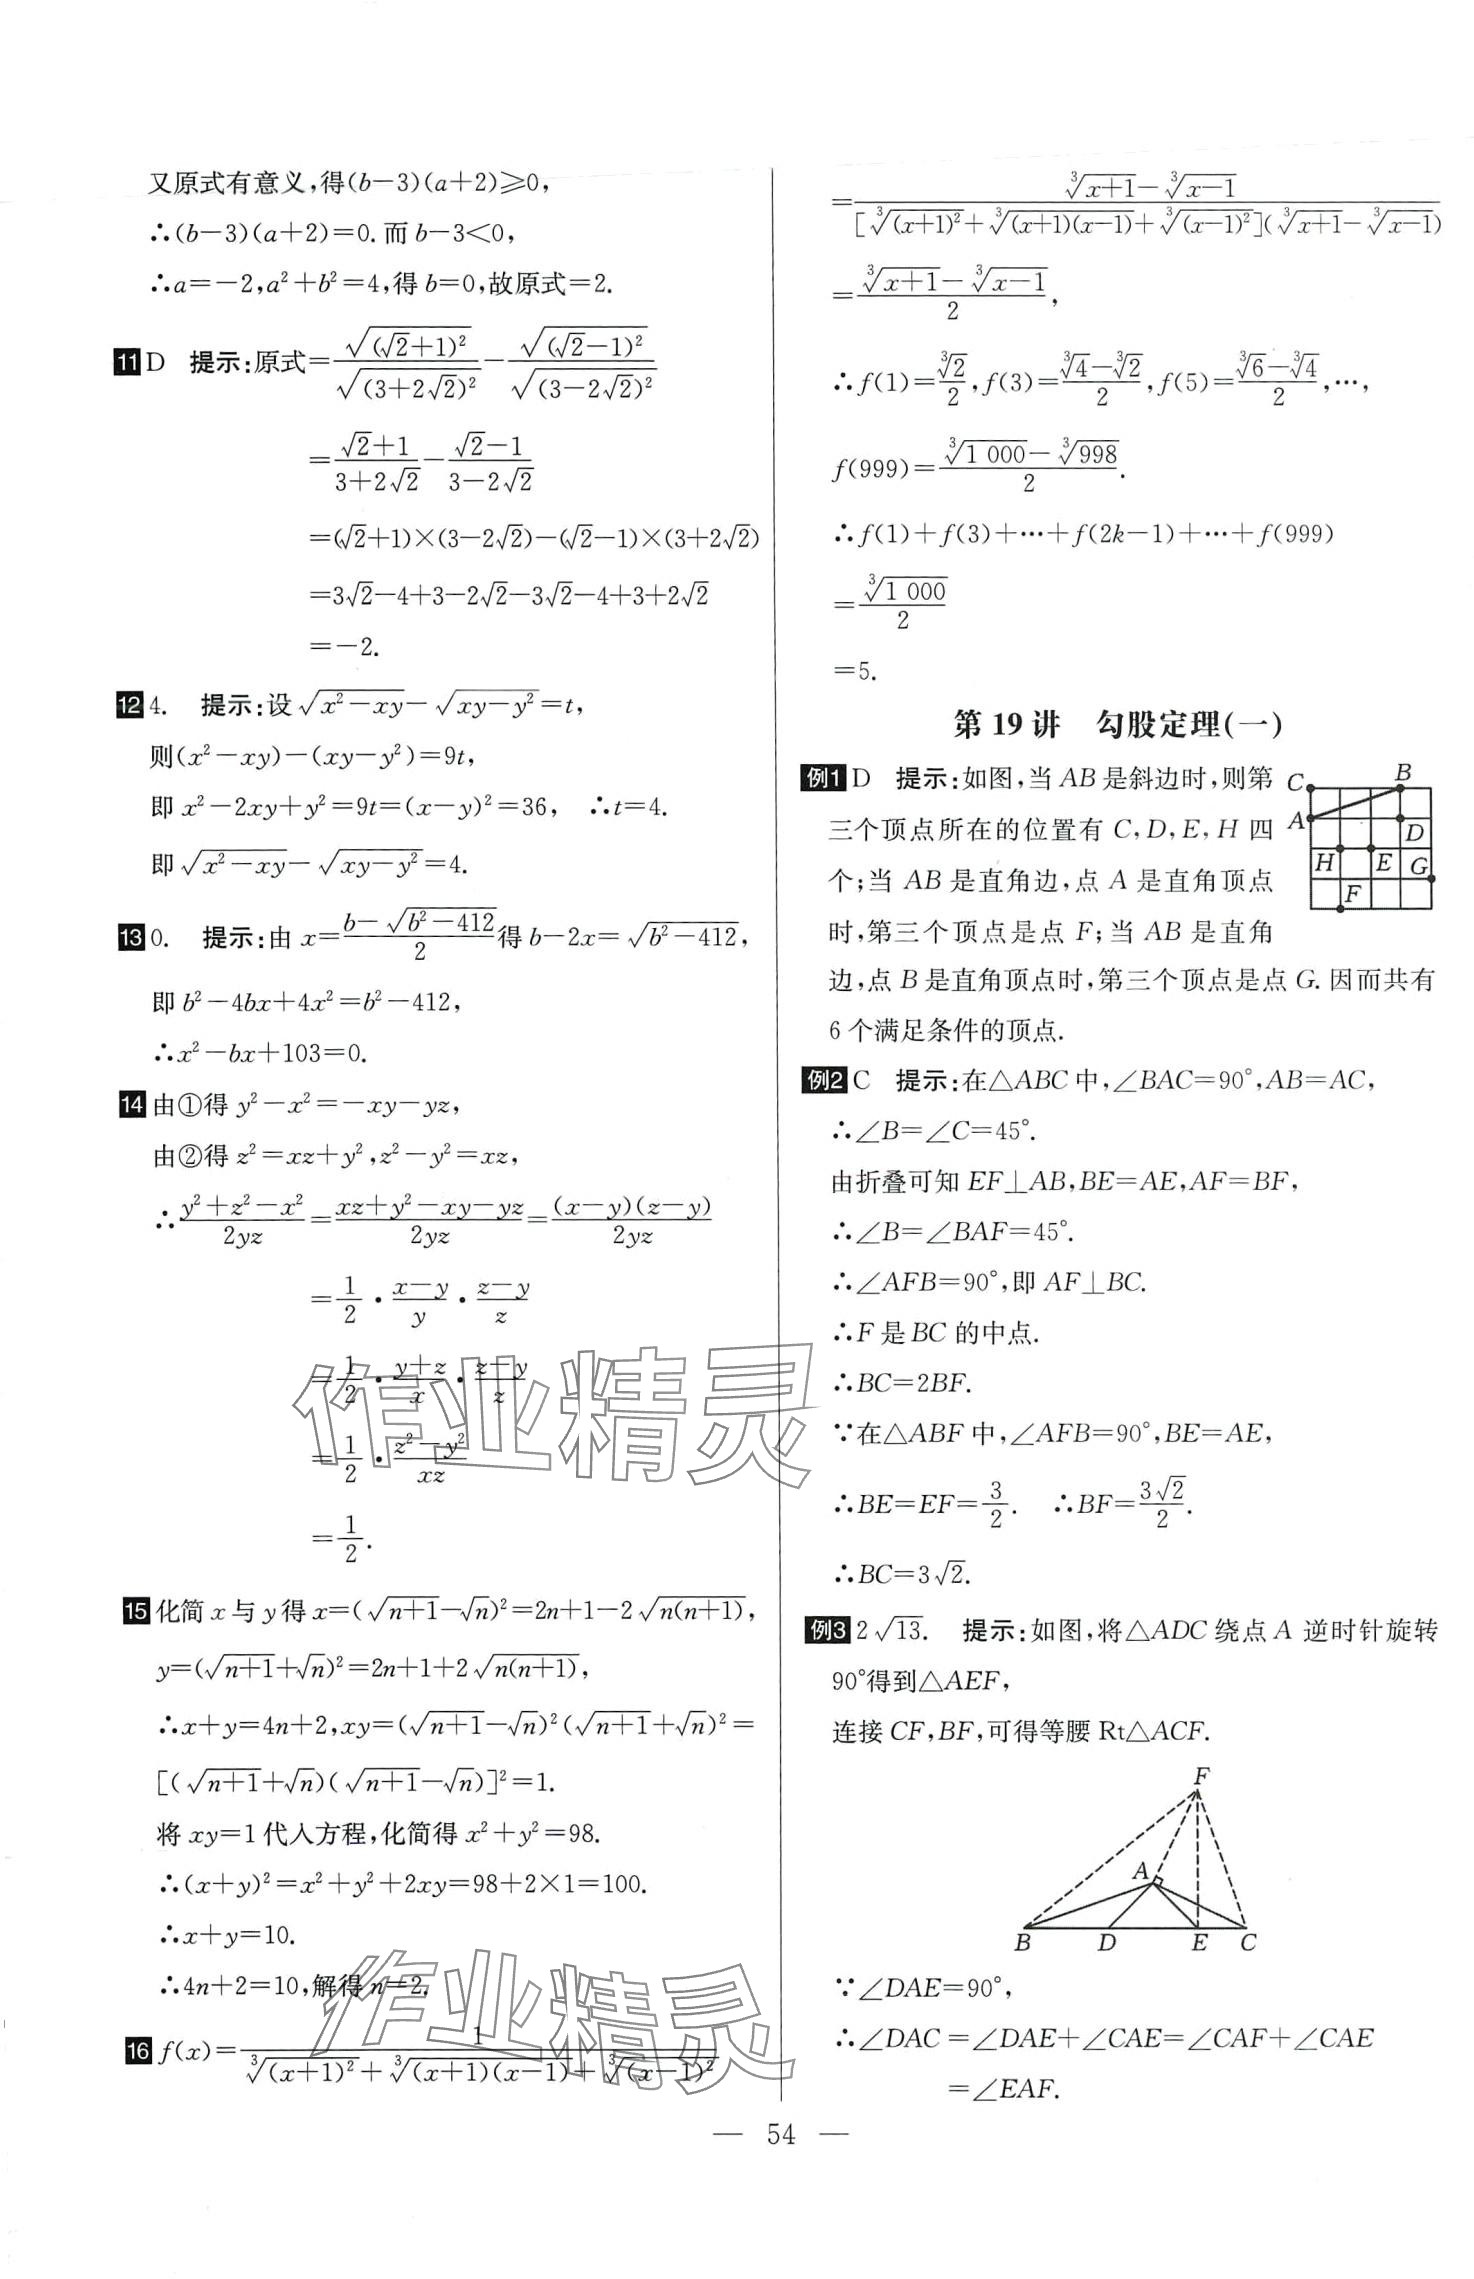 又原式有意义,得(b−3)(a+2)≥0,
∴(b−3)(a+2)=0.而 b−3<0,
∴a=−2,a²+b²=4,得 b=0,故原式=2.
11 D 提示:原式=√(√2+1)²/√(3+2√2)²−√(√2−1)²/√(3−2√2)²
=(√2+1)/(3+2√2)−(√2−1)/(3−2√2)
=(√2+1)×(3−2√2)−(√2−1)×(3+2√2)
=3√2−4+3−2√2−3√2−4+3+2√2
=−2.
12 4. 提示:设√(x²−xy)−√(xy−y²)=t,
则(x²−xy)−(xy−y²)=9t,
即 x²−2xy+y²=9t=(x−y)²=36, ∴t=4.
即√(x²−xy)−√(xy−y²)=4.
13 0. 提示:由 x=(b−√(b²−412))/2得 b−2x=√(b²−412),
即 b²−4bx+4x²=b²−412,
∴x²−bx+103=0.
14 由①得 y²−x²=−xy−yz,
由②得 z²=xz+y²,z²−y²=xz,
∴(y²+z²−x²)/2yz=(xz+y²−xy−yz)/2yz=(x−y)(z−y)/2yz
=1/2·(x−y)/y·(z−y)/z
=1/2·(y+z)/x·(z−y)/z
=1/2·(z²−y²)/xz
=1/2.
15 化简 x 与 y 得 x=(√(n+1)−√n)²=2n+1−2√(n(n+1)),
y=(√(n+1)+√n)²=2n+1+2√(n(n+1)),
∴x+y=4n+2,xy=(√(n+1)−√n)²(√(n+1)+√n)²=
[(√(n+1)+√n)(√(n+1)−√n)]²=1.
将 xy=1 代入方程,化简得 x²+y²=98.
∴(x+y)²=x²+y²+2xy=98+2×1=100.
∴x+y=10.
∴4n+2=10,解得 n=2.
16 f(x)=1/(∛(x+1)²+∛((x+1)(x−1))+∛(x−1)²)
=(∛(x+1)−∛(x−1))/([∛(x+1)²+∛((x+1)(x−1))+∛(x−1)²](∛(x+1)−∛(x−1)))
=(∛(x+1)−∛(x−1))/2,
∴f(1)=∛2/2,f(3)=(∛4−∛2)/2,f(5)=(∛6−∛4)/2,…,
f(999)=(∛1 000−∛998)/2.
∴f(1)+f(3)+…+f(2k−1)+…+f(999)
=∛1 000/2
=5.
第 19 讲 勾股定理(一)
例1 D 提示:如图,当 AB 是斜边时,则第
三个顶点所在的位置有 C,D,E,H 四
个;当 AB 是直角边,点 A 是直角顶点
时,第三个顶点是点 F;当 AB 是直角
边,点 B 是直角顶点时,第三个顶点是点 G.因而共有
6 个满足条件的顶点.
C B
A D
H E G
F
例2 C 提示:在△ABC 中,∠BAC=90°,AB=AC,
∴∠B=∠C=45°.
由折叠可知 EF⊥AB,BE=AE,AF=BF,
∴∠B=∠BAF=45°.
∴∠AFB=90°,即 AF⊥BC.
∴F 是 BC 的中点.
∴BC=2BF.
∵在△ABF 中,∠AFB=90°,BE=AE,
∴BE=EF=3/2. ∴BF=3√2/2.
∴BC=3√2.
例3 2√13. 提示:如图,将△ADC 绕点 A 逆时针旋转
90°得到△AEF,
连接 CF,BF,可得等腰 Rt△ACF.
F
A
B D E C
∵∠DAE=90°,
∴∠DAC=∠DAE+∠CAE=∠CAF+∠CAE
=∠EAF.
— 54 —
作业精灵
作业精灵